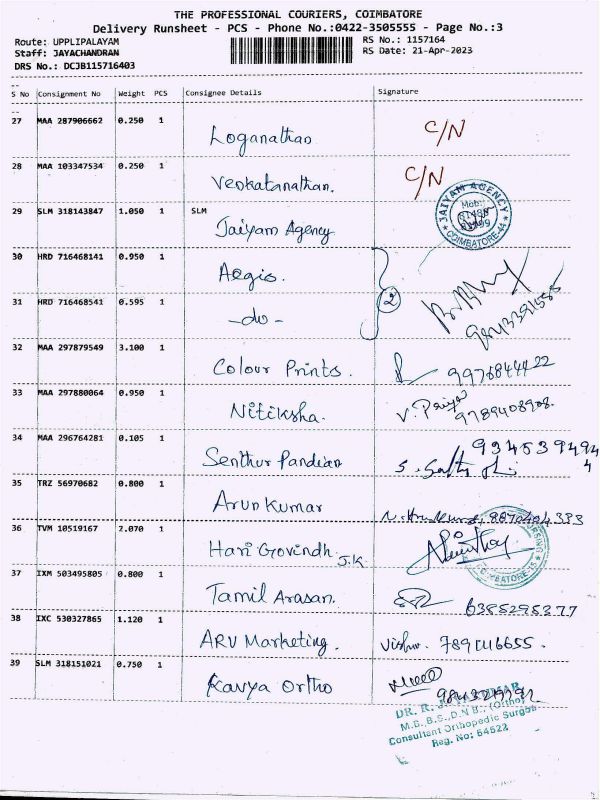 THE PROFESSIONAL COURIERS, COIMBATORE
Delivery Runsheet - PCS - Phone No.:0422-3505555 - Page No.:3
Route: UPPLIPALAYAM
RS No.: 1157164
Staff: JAYACHANDRAN
RS Date: 21-Apr-2023
DRS No.: DCJB115716403
S No Consignment No Weight PCS Consignee Details Signature
27 MAA 287906662 0.250 1 Loganathan C/N
28 MAA 103347534 0.250 1 Venkatanathan. C/N
29 SLM 318143847 1.050 1 SLM Jaiyam Agency
JAIYAM AGENCY
Mob:
COIMBATORE-44
30 HRD 716468141 0.950 1 Aegis.
2
31 HRD 716468541 0.595 1 -do-
32 MAA 297879549 3.100 1 Colour Prints. 9976844422
33 MAA 297880064 0.950 1 Nitiksha. V. Priya
9789408908.
34 MAA 296764281 0.105 1 Senthur Pandian
35 TRZ 56970682 0.800 1 Arunkumar
36 TVM 10519167 2.070 1 Hari Govindh J.K
COIMBATORE-15
37 IXM 503495805 0.800 1 Tamil Arasan. 6385295377
38 IXC 530327865 1.120 1 ARV Marketing.
39 SLM 318151021 0.750 1 Kavya Ortho
DR. R.
M.B.,B.S.,D.N.B., (Ortho)
Consultant Orthopedic Surgeon
Reg. No: 64522